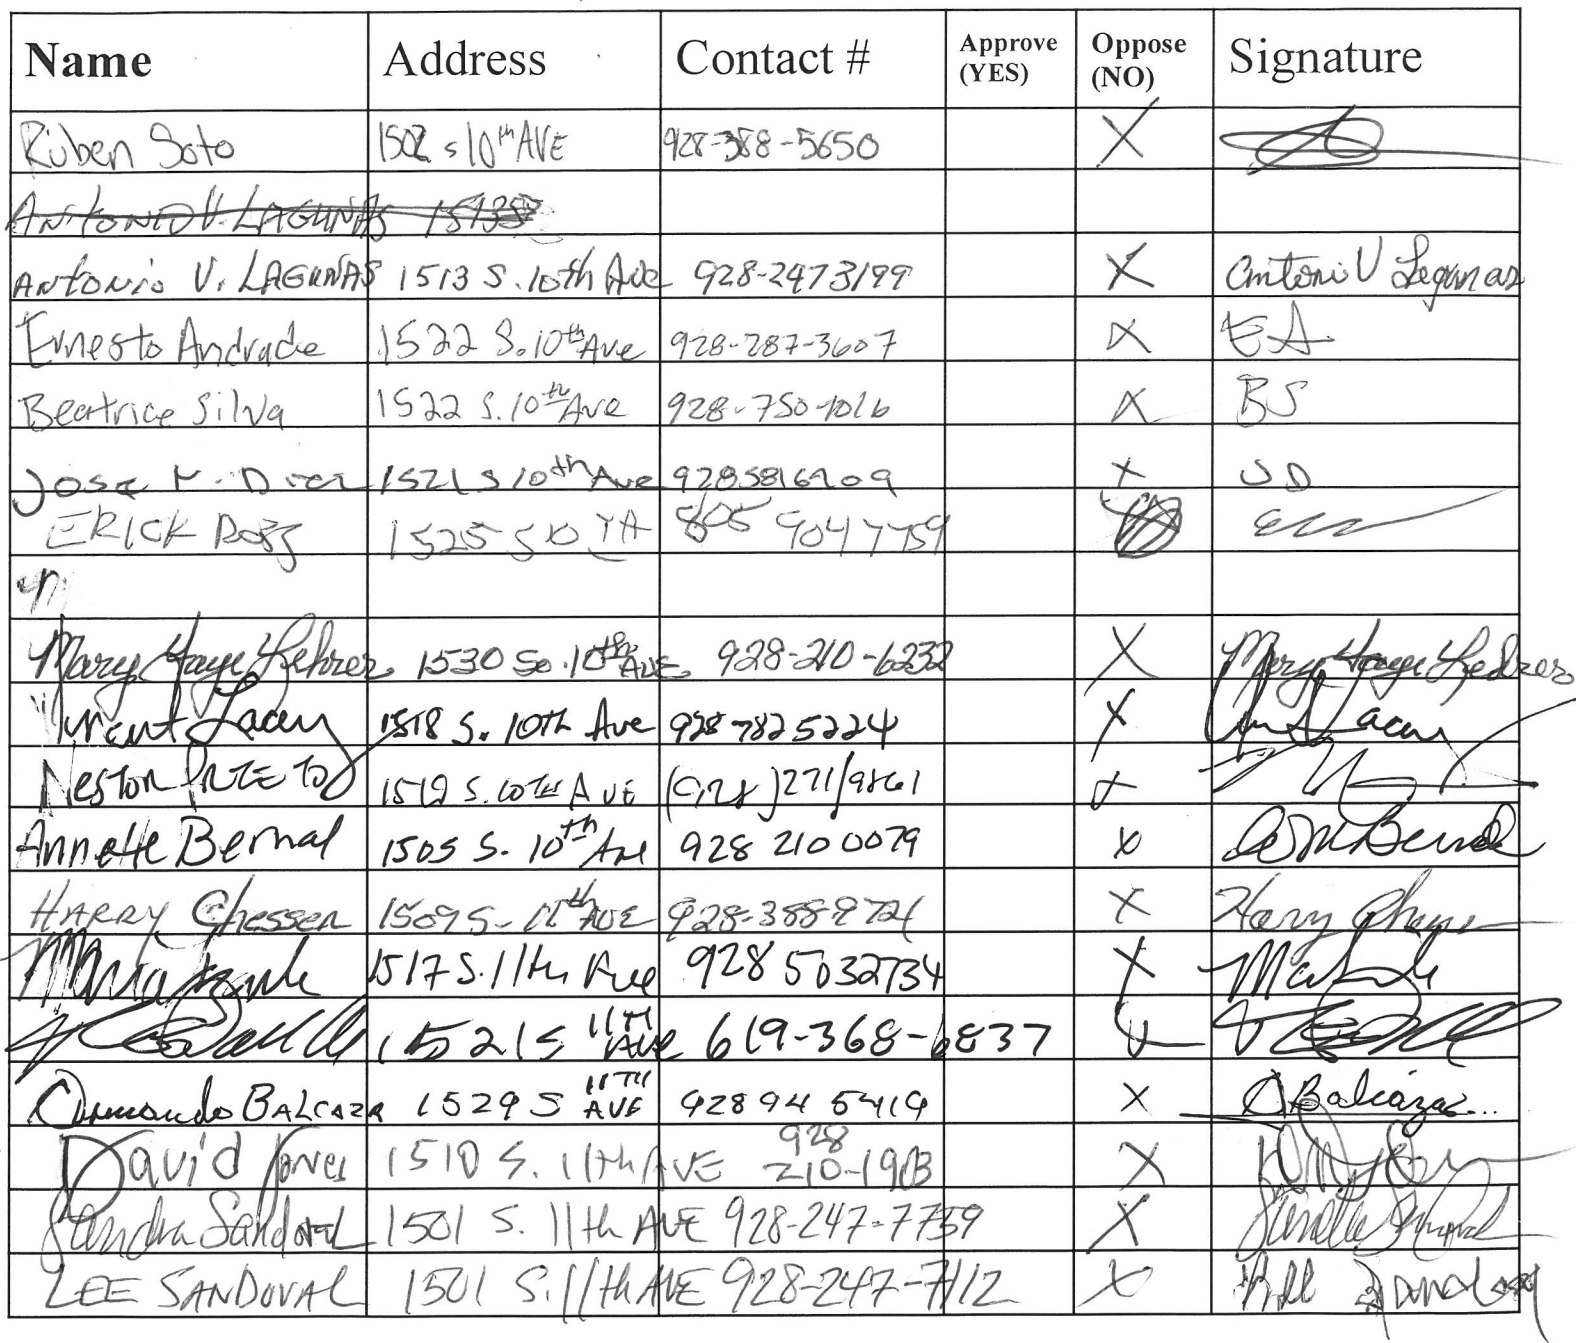 Name Address Contact # Approve (YES) Oppose (NO) Signature
Ruben Soto 1502 S 10th AVE 928-388-5650 X
ANTONIO V. LAGUNAS 1513S
ANTONIO V. LAGUNAS 1513 S. 10th Ave 928-2473199 X Antonio V Lagunas
Ernesto Andrade 1522 S. 10th Ave 928-287-3607 X EA
Beatrice Silva 1522 S. 10th Ave 928-750-1016 X BS
Jose 1521 S 10th Ave 9285816209 X JD
ERICK 1525 S 10 805 904 7759
Mary Faye Lehrer 1530 So. 10th AVE. 928-210-6232 X Mary Faye
Lacey 1518 S. 10th Ave 928 782 5224 X Lacey
Nestor PRIETO S. 10TH AVE (928) 271/9861 X
Annette Bernal 1505 S. 10th Ave 928 210 0079 X Bernal
HARRY Chesser 1509 S. 11th AVE X Harry
Maria 1517 S. 11th Ave 928 5032734 X
1521 S 11TH AVE 619-368-6837
Armando BALCAZR 1529 S 11TH AVE 928 94 5419 X Balcázar...
David Jones 1510 S. 11th AVE 928 210-1903 X
Sandra Sandoval 1501 S. 11th AVE 928-247-7759 X
LEE SANDOVAL 1501 S. 11th AVE 928-247-7112 X